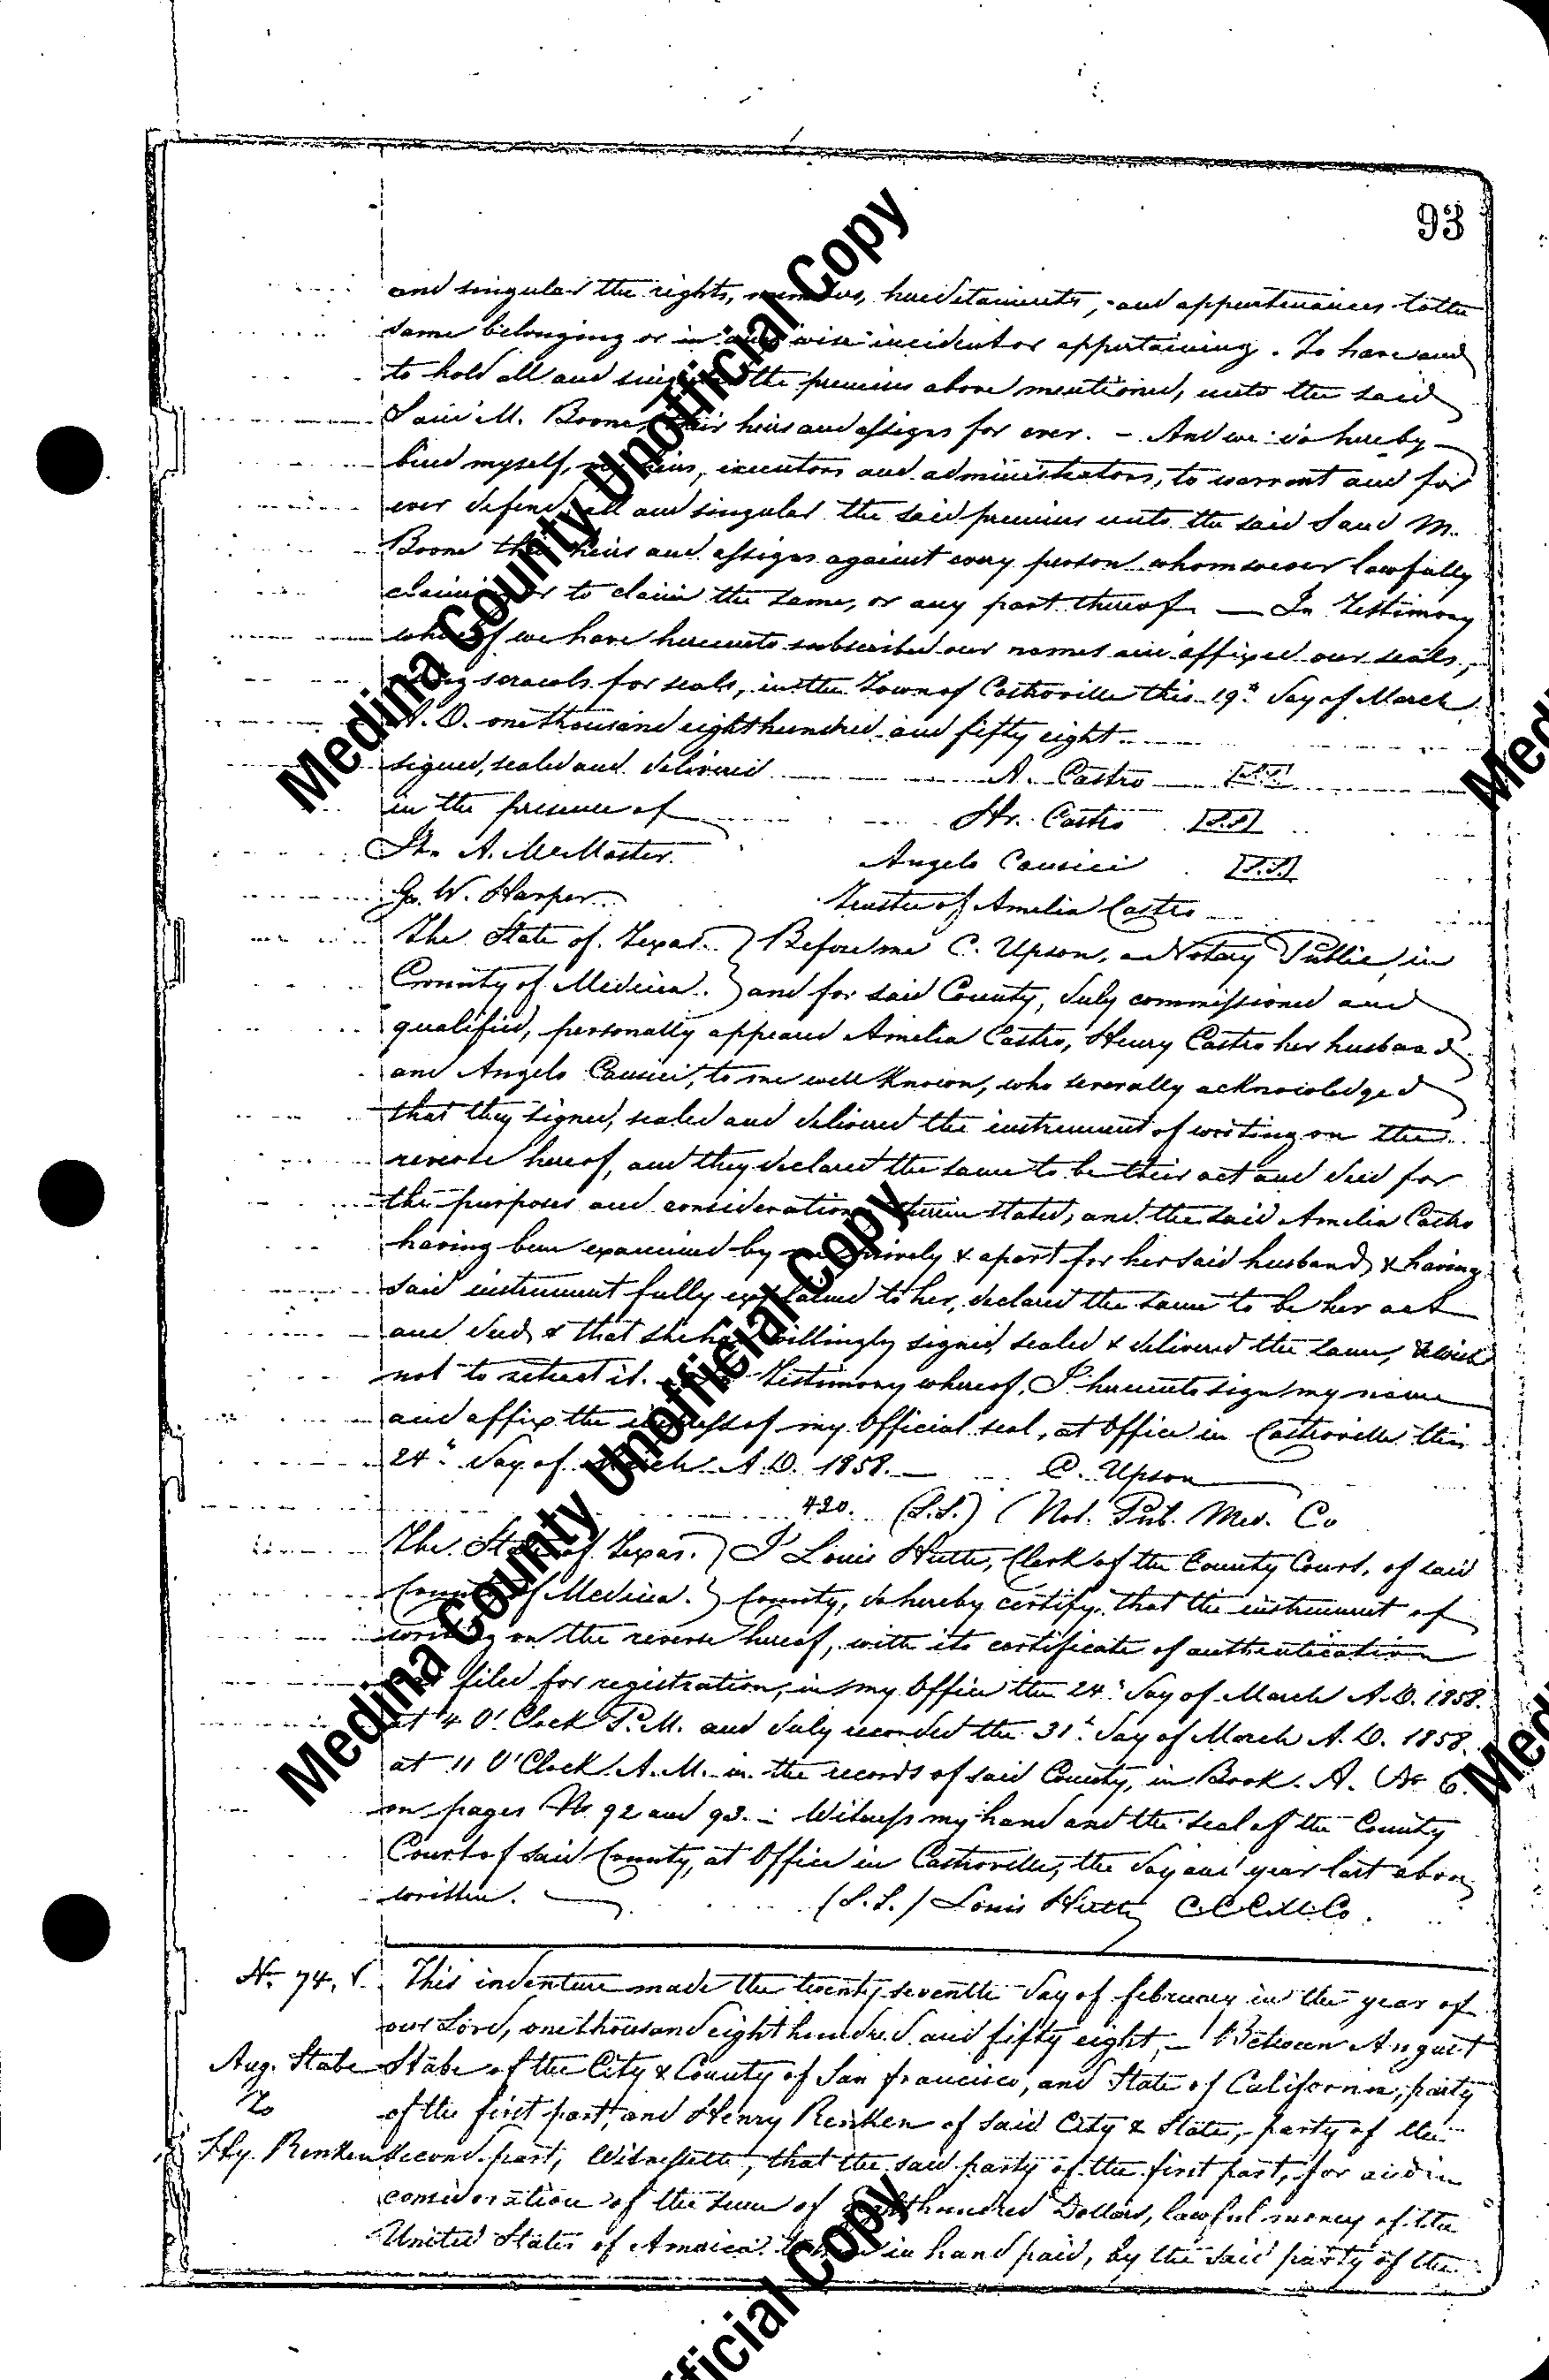 93
and singular the rights, members, hereditaments, and appurtenances to the
same belonging or in any wise incident or appertaining. To have and
to hold all and singular the premises above mentioned, unto the said
Sam'l M. Boone, their heirs and assigns for ever. – And we do hereby
bind myself, my heirs, executors and administrators, to warrant and for
ever defend all and singular the said premises unto the said Sam'l M.
Boone their heirs and assigns against every person whomsoever lawfully
claiming or to claim the same, or any part thereof. — In Testimony
whereof we have hereunto subscribed our names and affixed our seals,
using scrawls for seals, in the Town of Castroville this 19th day of March
A. D. one thousand eight hundred and fifty eight
signed, sealed and delivered A. Castro [L.S.]
in the presence of Hr. Castro [L.S.]
Jn. A. McMaster. Angelo Causici [L.S.]
G. W. Harper. Trustee of Amelia Castro
The State of Texas. } Before me C. Upson, a Notary Public, in
County of Medina. } and for said County, duly commissioned and
qualified, personally appeared Amelia Castro, Henry Castro her husband
and Angelo Causici, to me well known, who severally acknowledged
that they signed, sealed and delivered the instrument of writing on the
reverse hereof, and they declared the same to be their act and deed for
the purposes and considerations therein stated, and the said Amelia Castro
having been examined by me prively & apart for her said husband, & having
said instrument fully explained to her, declared the same to be her act
and deed, & that she had willingly signed, sealed & delivered the same, & wish
not to retract it. Testimony whereof, I hereunto sign my name
and affix the impress of my Official seal, at Office in Castroville this
24" day of March A.D. 1858. — C. Upson
420. (L.S.) Not. Pub. Med. Co
The State of Texas. } I Louis Huth, Clerk of the County Court, of said
County of Medina. } County, do hereby certify, that the instrument of
writing on the reverse hereof, with its certificate of authentication
filed for registration, in my Office the 24" day of March A.D. 1858.
at 4 O'Clock P.M. and duly recorded the 31t day of March A.D. 1858.
at 11 O'Clock A.M. in the records of said County, in Book. A. No 6.
on pages No. 92 and 93. – Witness my hand and the seal of the County
Court of said County, at Office in Castroville, the day and year last above
written. (L.S.) Louis Huth C.C.C.M.Co.
No. 74. This indenture made the twenty seventh day of february in the year of
our Lord, one thousand eight hundred and fifty eight, – Between August
Aug. Stabe Stabe of the City & County of San francisco, and State of California, party
To of the first part, and Henry Renken of said City & State, party of the
Hy. Renken second part, Witnesseth, that the said party of the first part, for and in
consideration of the sum of hundred Dollars, lawful money of the
United States of America in hand paid, by the said party of the
Medina County Unofficial Copy
Medina County Unofficial Copy
Medi
Medi
fficial Copy